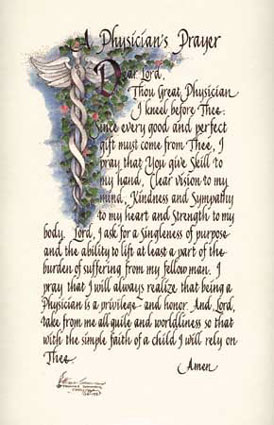 A Physician's Prayer
Dear Lord,
Thou Great Physician
I kneel before Thee.
Since every good and perfect
gift must come from Thee, I
pray that You give Skill to
my hand, Clear vision to my
mind, Kindness and Sympathy
to my heart and Strength to my
body. Lord, I ask for a Singleness of purpose
and the ability to lift at least a part of the
burden of suffering from my fellowman. I
pray that I will always realize that being a
Physician is a privilege and honor. And Lord,
take from me all guile and worldliness so that
with the simple faith of a child I will rely on
Thee.
Amen